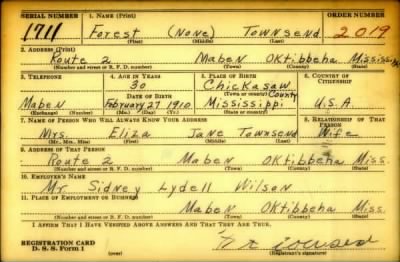 SERIAL NUMBER 1. NAME (Print) ORDER NUMBER
1711 Forest (None) Townsend 2019
(First) (Middle) (Last)
2. ADDRESS (Print)
Route 2 Maben Oktibbeha Mississippi
(Number and street or R. F. D. number) (Town) (County) (State)
3. TELEPHONE 4. AGE IN YEARS 5. PLACE OF BIRTH 6. COUNTRY OF CITIZENSHIP
30 Chickasaw
DATE OF BIRTH (Town or county) County
Maben February 27 1910 Mississippi U.S.A.
(Exchange) (Number) (Mo.) (Day) (Yr.) (State or country)
7. NAME OF PERSON WHO WILL ALWAYS KNOW YOUR ADDRESS 8. RELATIONSHIP OF THAT PERSON
Mrs. Eliza Jane Townsend Wife
(Mr., Mrs., Miss) (First) (Middle) (Last)
9. ADDRESS OF THAT PERSON
Route 2 Maben Oktibbeha Miss.
(Number and street or R. F. D. number) (Town) (County) (State)
10. EMPLOYER'S NAME
Mr Sidney Lydell Wilson
11. PLACE OF EMPLOYMENT OR BUSINESS
Maben Oktibbeha Miss.
(Number and street or R. F. D. number) (Town) (County) (State)
I AFFIRM THAT I HAVE VERIFIED ABOVE ANSWERS AND THAT THEY ARE TRUE.
REGISTRATION CARD
D. S. S. Form 1 (Registrant's signature)